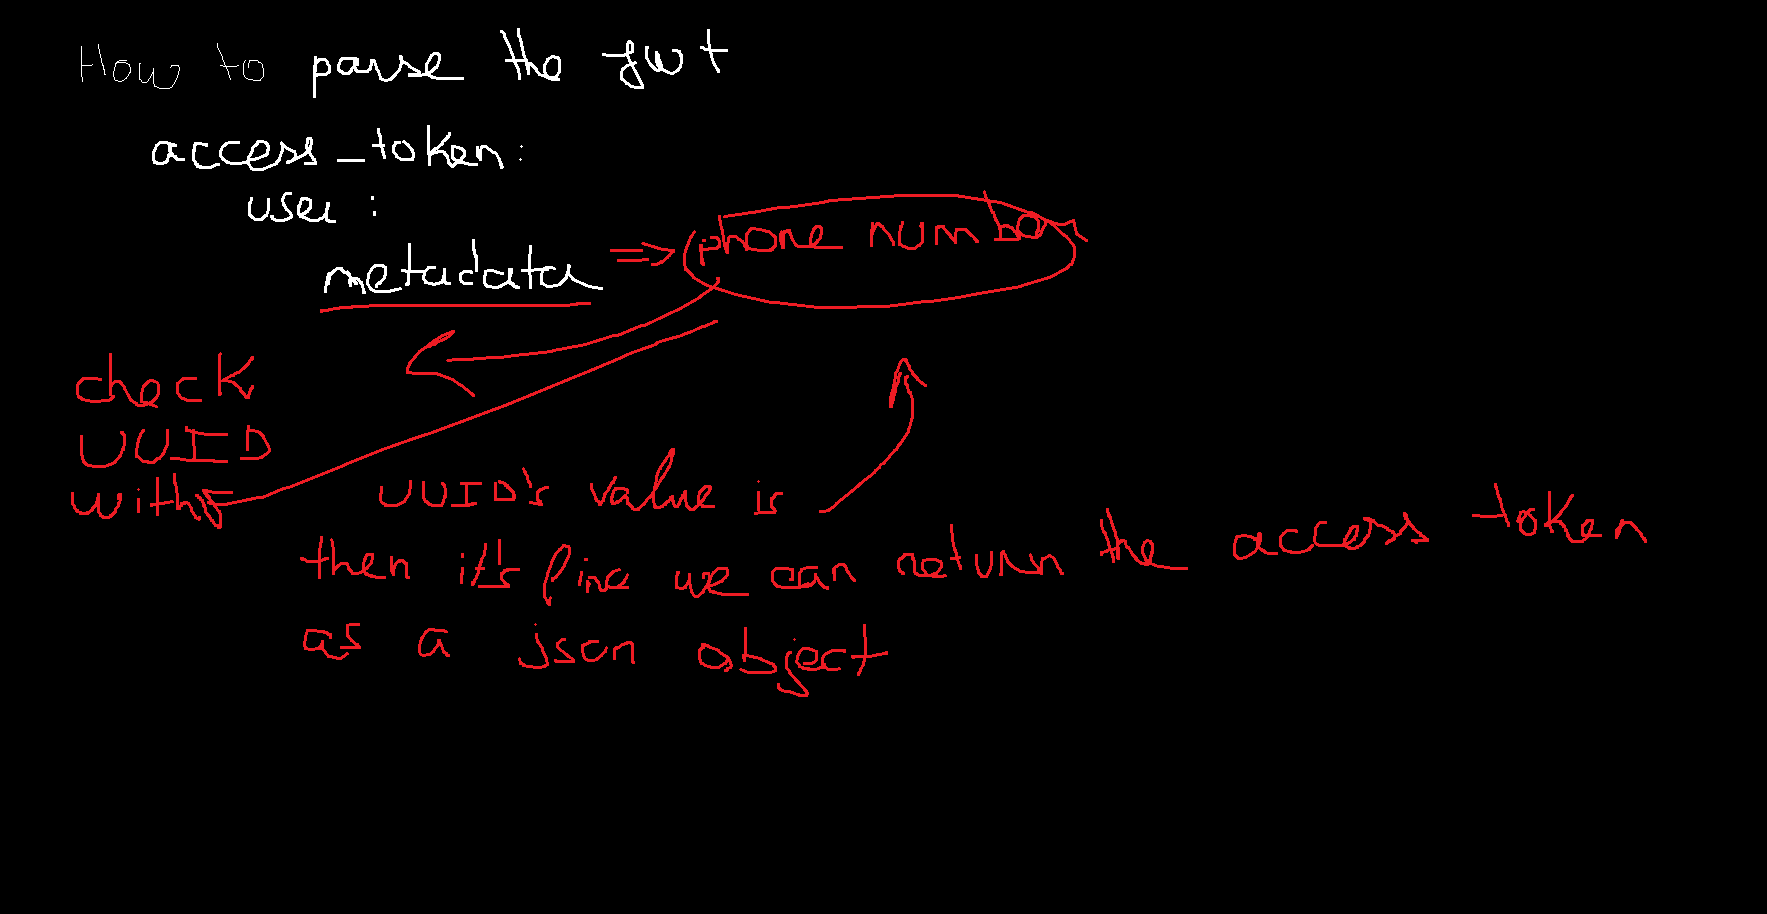 How to parse the jwt
access_token:
user:
metadata => phone number
check
UUID
with
UUID's value is
then it's fine we can return the access token
as a json object